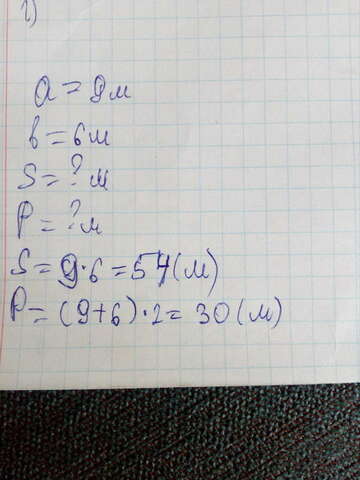 1)
a = 9 м
b = 6 м
S = ? м
P = ? м
S = 9 · 6 = 54 (м)
P = (9+6) · 2 = 30 (м)